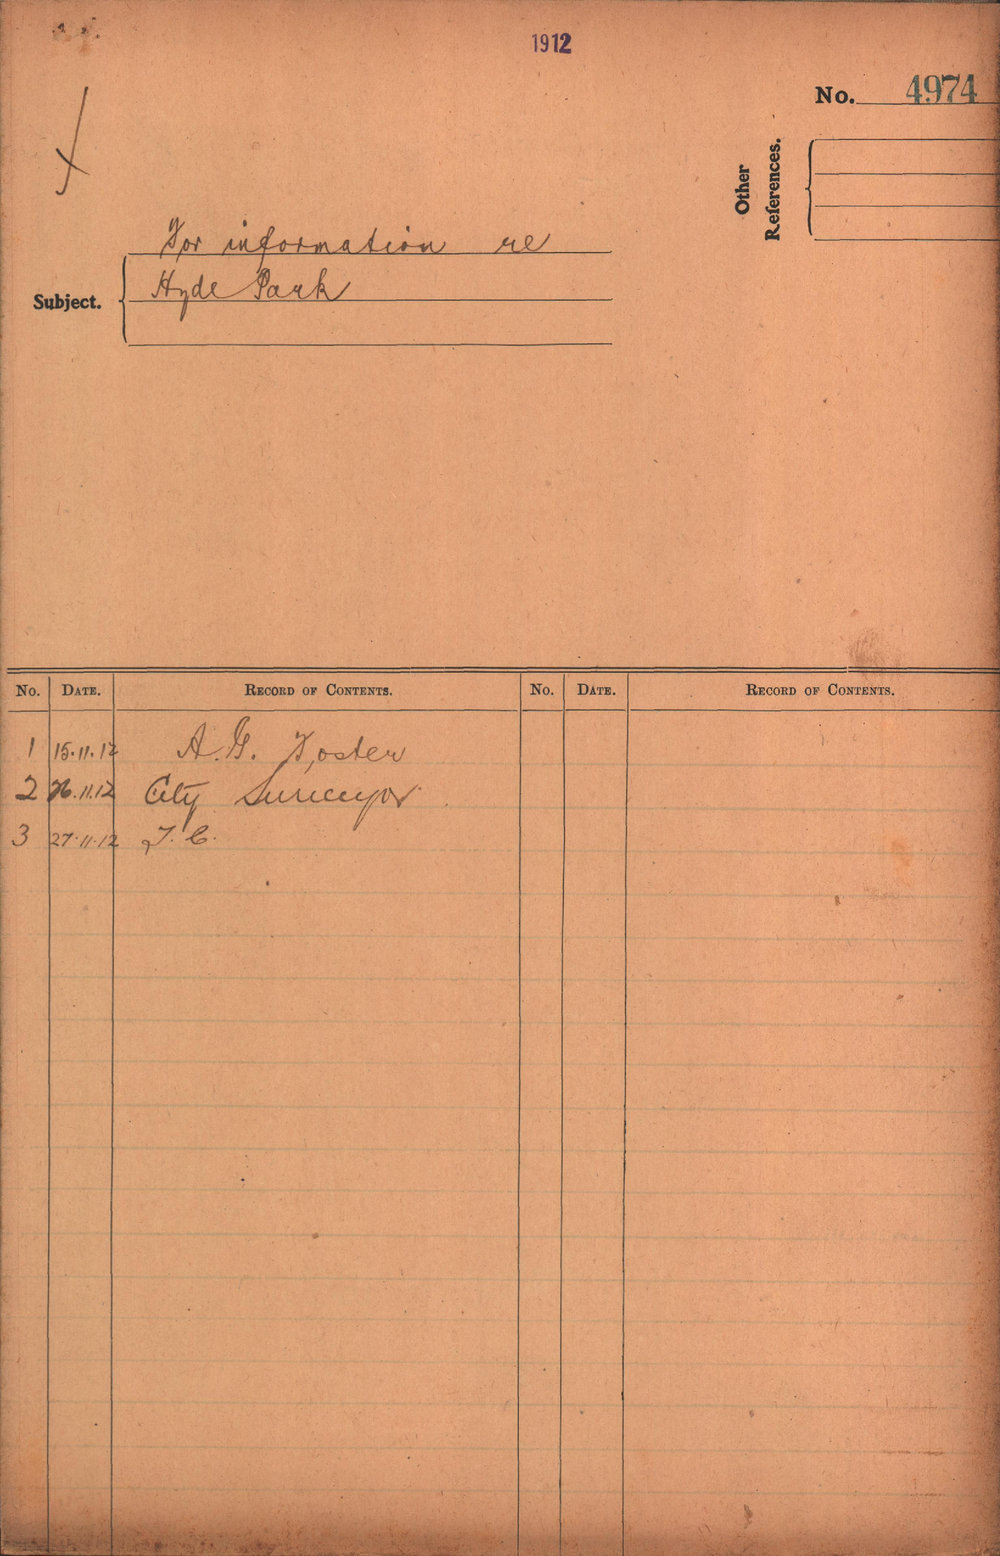 1912
No. 4974
Other References.
For information re
Subject.
Hyde Park
No. DATE. RECORD OF CONTENTS. No. DATE. RECORD OF CONTENTS.
1 15.11.12 A. G. Foster
2 26.11.12 City Surveyor
3 27.11.12 T. C.